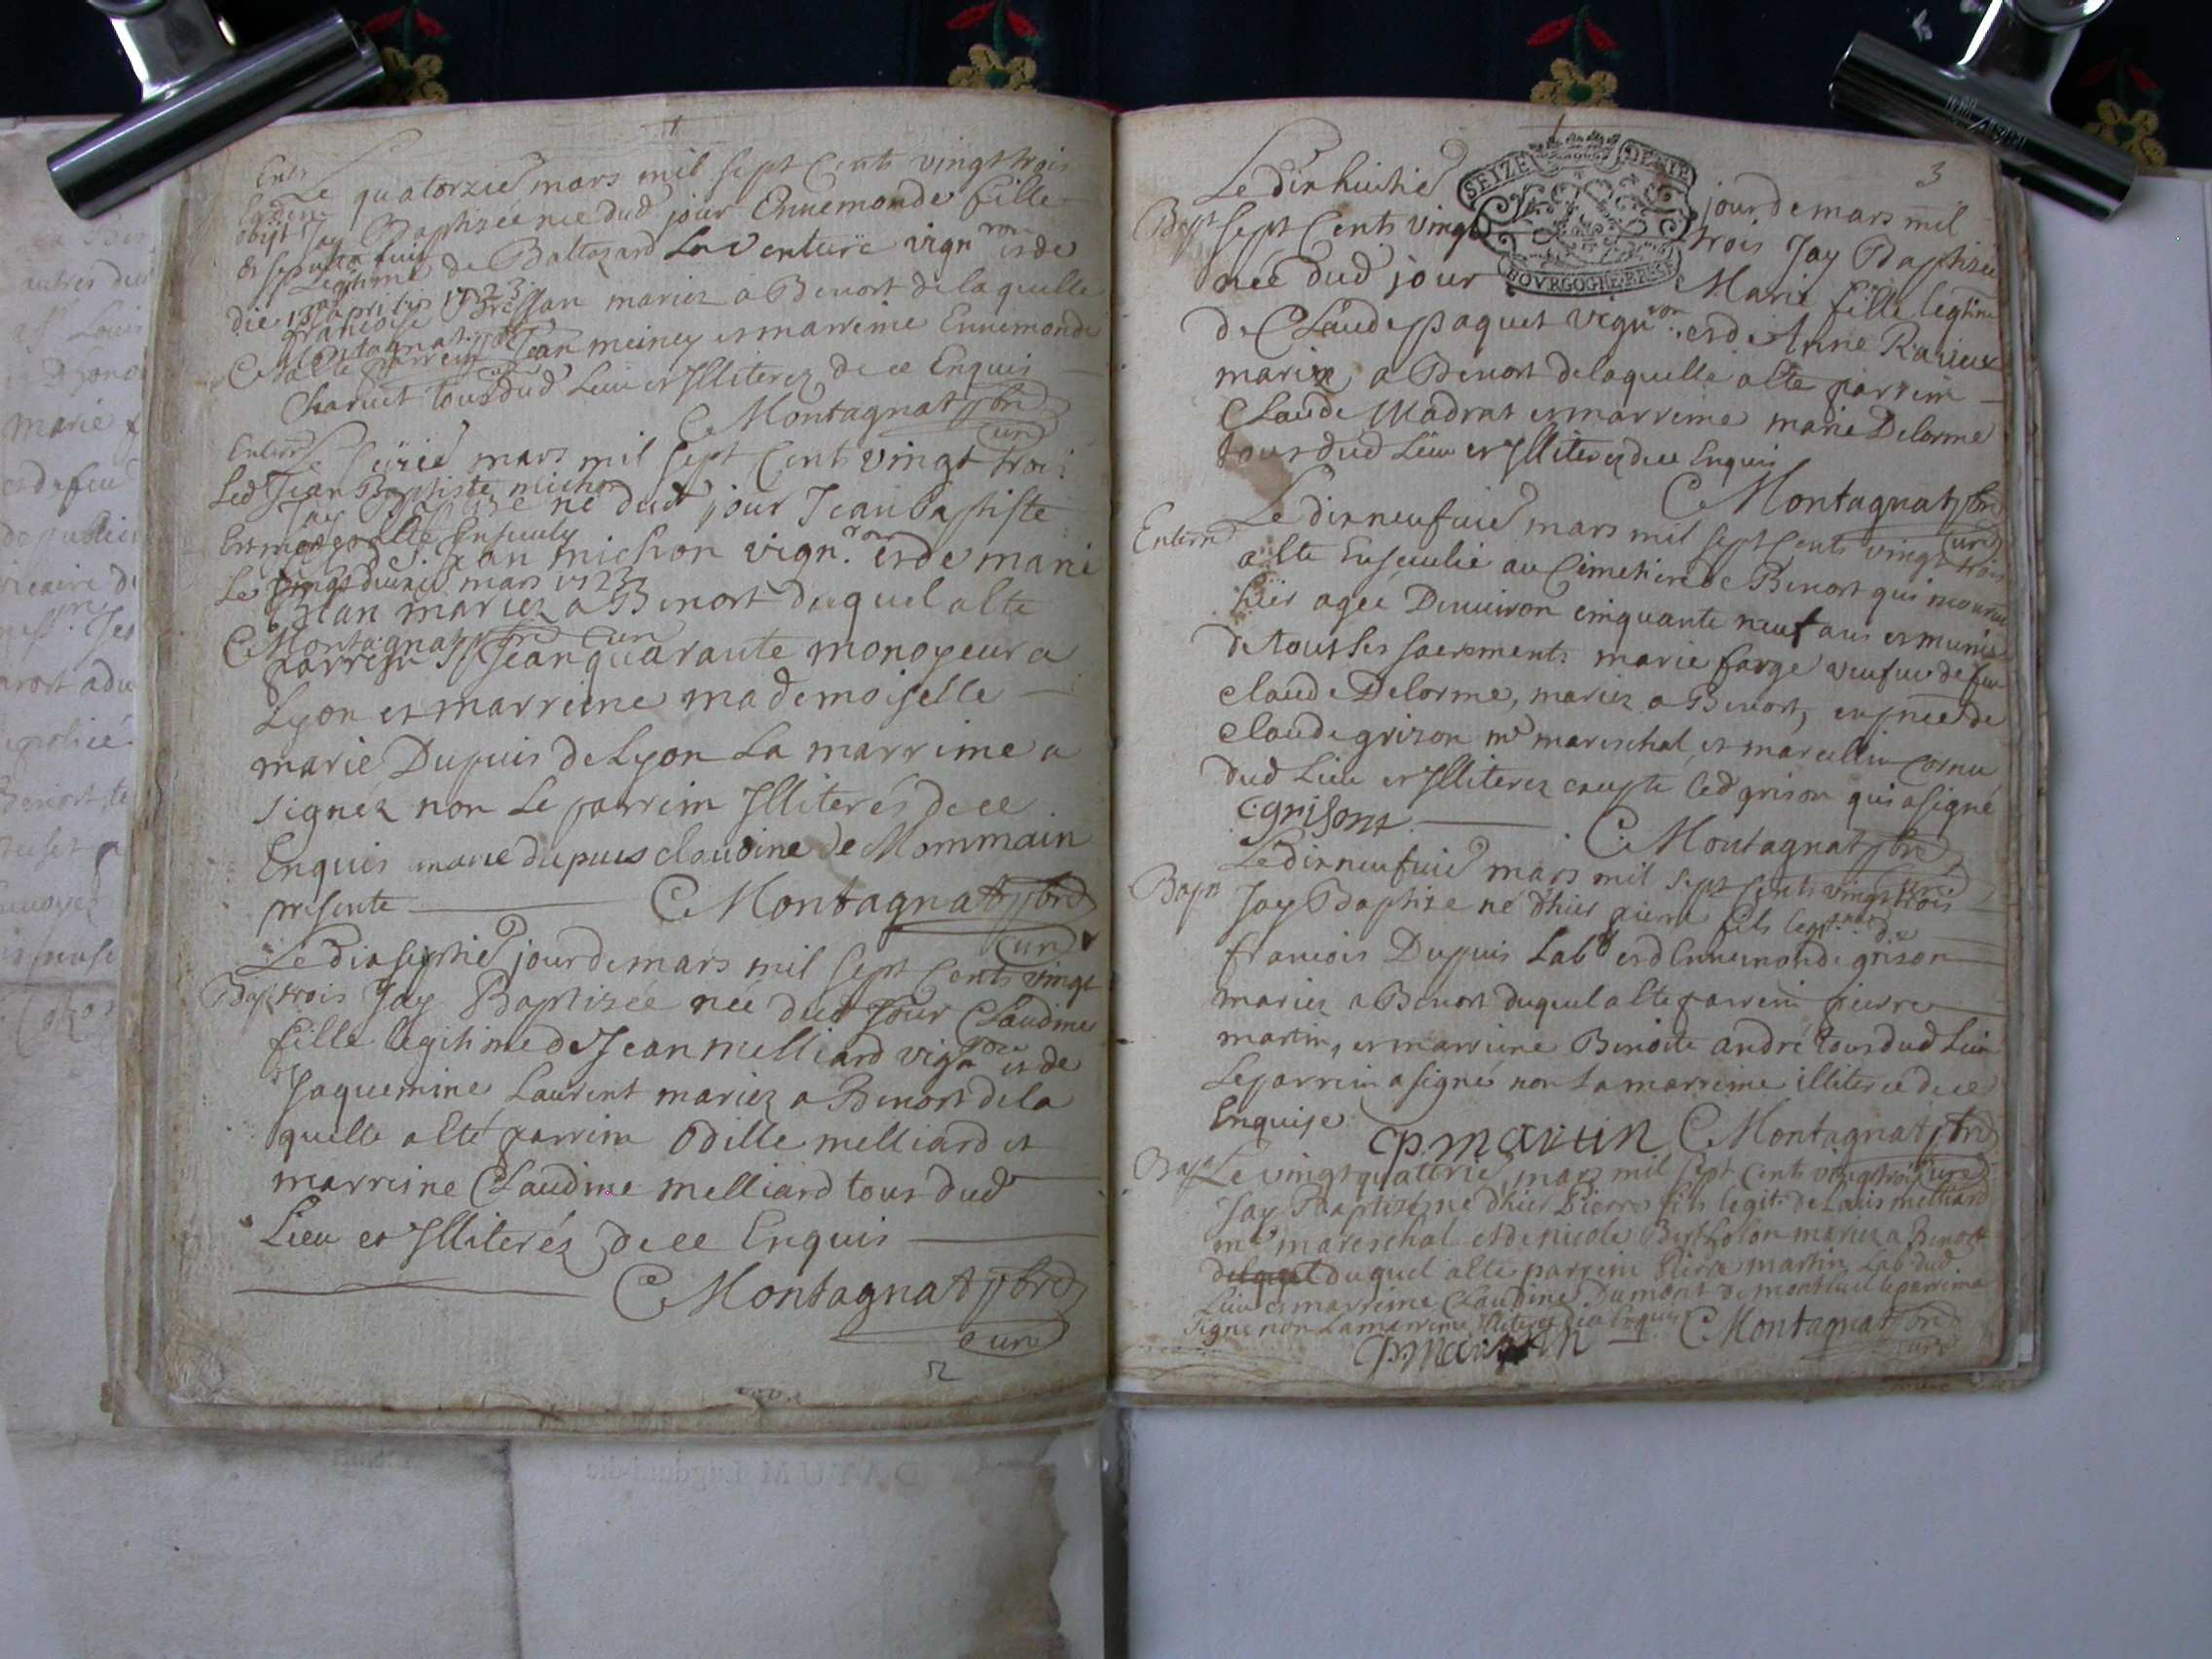 Le quatorzie mars mil sept Cents vingt trois
Jay Baptizée née dud jour Ennemonde fille
Legitime de Baltazard Laventure vign ron et de
francoise Bressan mariez a Benost de laquelle
alte parrein Jean meiney et marreine Ennemonde
Charvet tous dud Lieu et Illiterez de ce Enquis
C Montagnat pbre
curé
Enterr
Le seizie mars mil sept Cents vingt trois
Led Jean Baptiste michon
Jay Baptize né dud jour Jean Baptiste
Est mort et alte Enseuely
Jean michon vign. ron et de marie
Le vingt deuxie mars 1723
Blan mariez a Benost duquel alte
C Montagnat pbre curé
parrein Jean quarante monoyeur a
Lyon et marreine mademoiselle
marie Dupuis de Lyon La marreine a
signez non Le parrein Illiterés de ce
Enquis marie dupuis claudine de Mommain
presente C Montagnat pbre
curé
Le dix septie jour de mars mil sept Cents vingt
Bap trois Jay Baptizée née dud Jour Claudine
fille legitime de Jean melliard vign ron et de
Jaquemine Laurent mariez a Benost de la
quelle alte parrein Odille melliard et
marreine Claudine melliard tous dud
Lieu et Illiteréz de ce Enquis
C Montagnat pbre
curé
2
3
SEIZE DENIE
BOURGOGNE BRESSE
Le dix huictie jour de mars mil
Bapt sept Cents vingt trois Jay Baptizée
née dud jour Marie fille legitime
de Claude paquet vign ron et de Anne Ravieux
mariez a Benost de laquelle alte parrein
Claude Madrat et marreine marie Delorme
tous dud Lieu et Illiterez de ce Enquis
C Montagnat pbre
curé
Enterr
Le dix neufuie mars mil sept Cents vingt trois
alte Enseuelie au Cimetiere de Benost qui mourut
hier agée Denuiron cinquante neuf ans et munie
de tout Les sacrements marie farge veufue de feu
claude Delorme, mariez a Benost, en pnce de
claude grison me mareschal, et marcellin cornu
dud Lieu et Illiterez excepte led grison qui a signé
C grison C Montagnat pbre
curé
Le dix neufuie mars mil sept Cents vingt trois
Bapt Jay Baptize né dhier pierre fils legit. de
francois Dupuis Lab et d Ennemonde grison
mariez a Benost duquel alte parrein pierre
martin, et marreine Benoite andré tous dud Lieu
Le parrein a signé non La marreine illiterée de ce
Enquise
P. martin C Montagnat pbre
curé
Bapt Le vingt quatrie mars mil sept Cents vingt trois
Jay Baptizé né dhier Pierre fils legit. de Louis melliard
me mareschal et de nicole Bertholon mariez a Benost
duquel alte parrein Pierre martin Lab dud
Lieu et marreine Claudine Dumont de montluel le parrein a
signé non La marreine Illiteres de ce Enquis C Montagnat pbre
P. martin curé